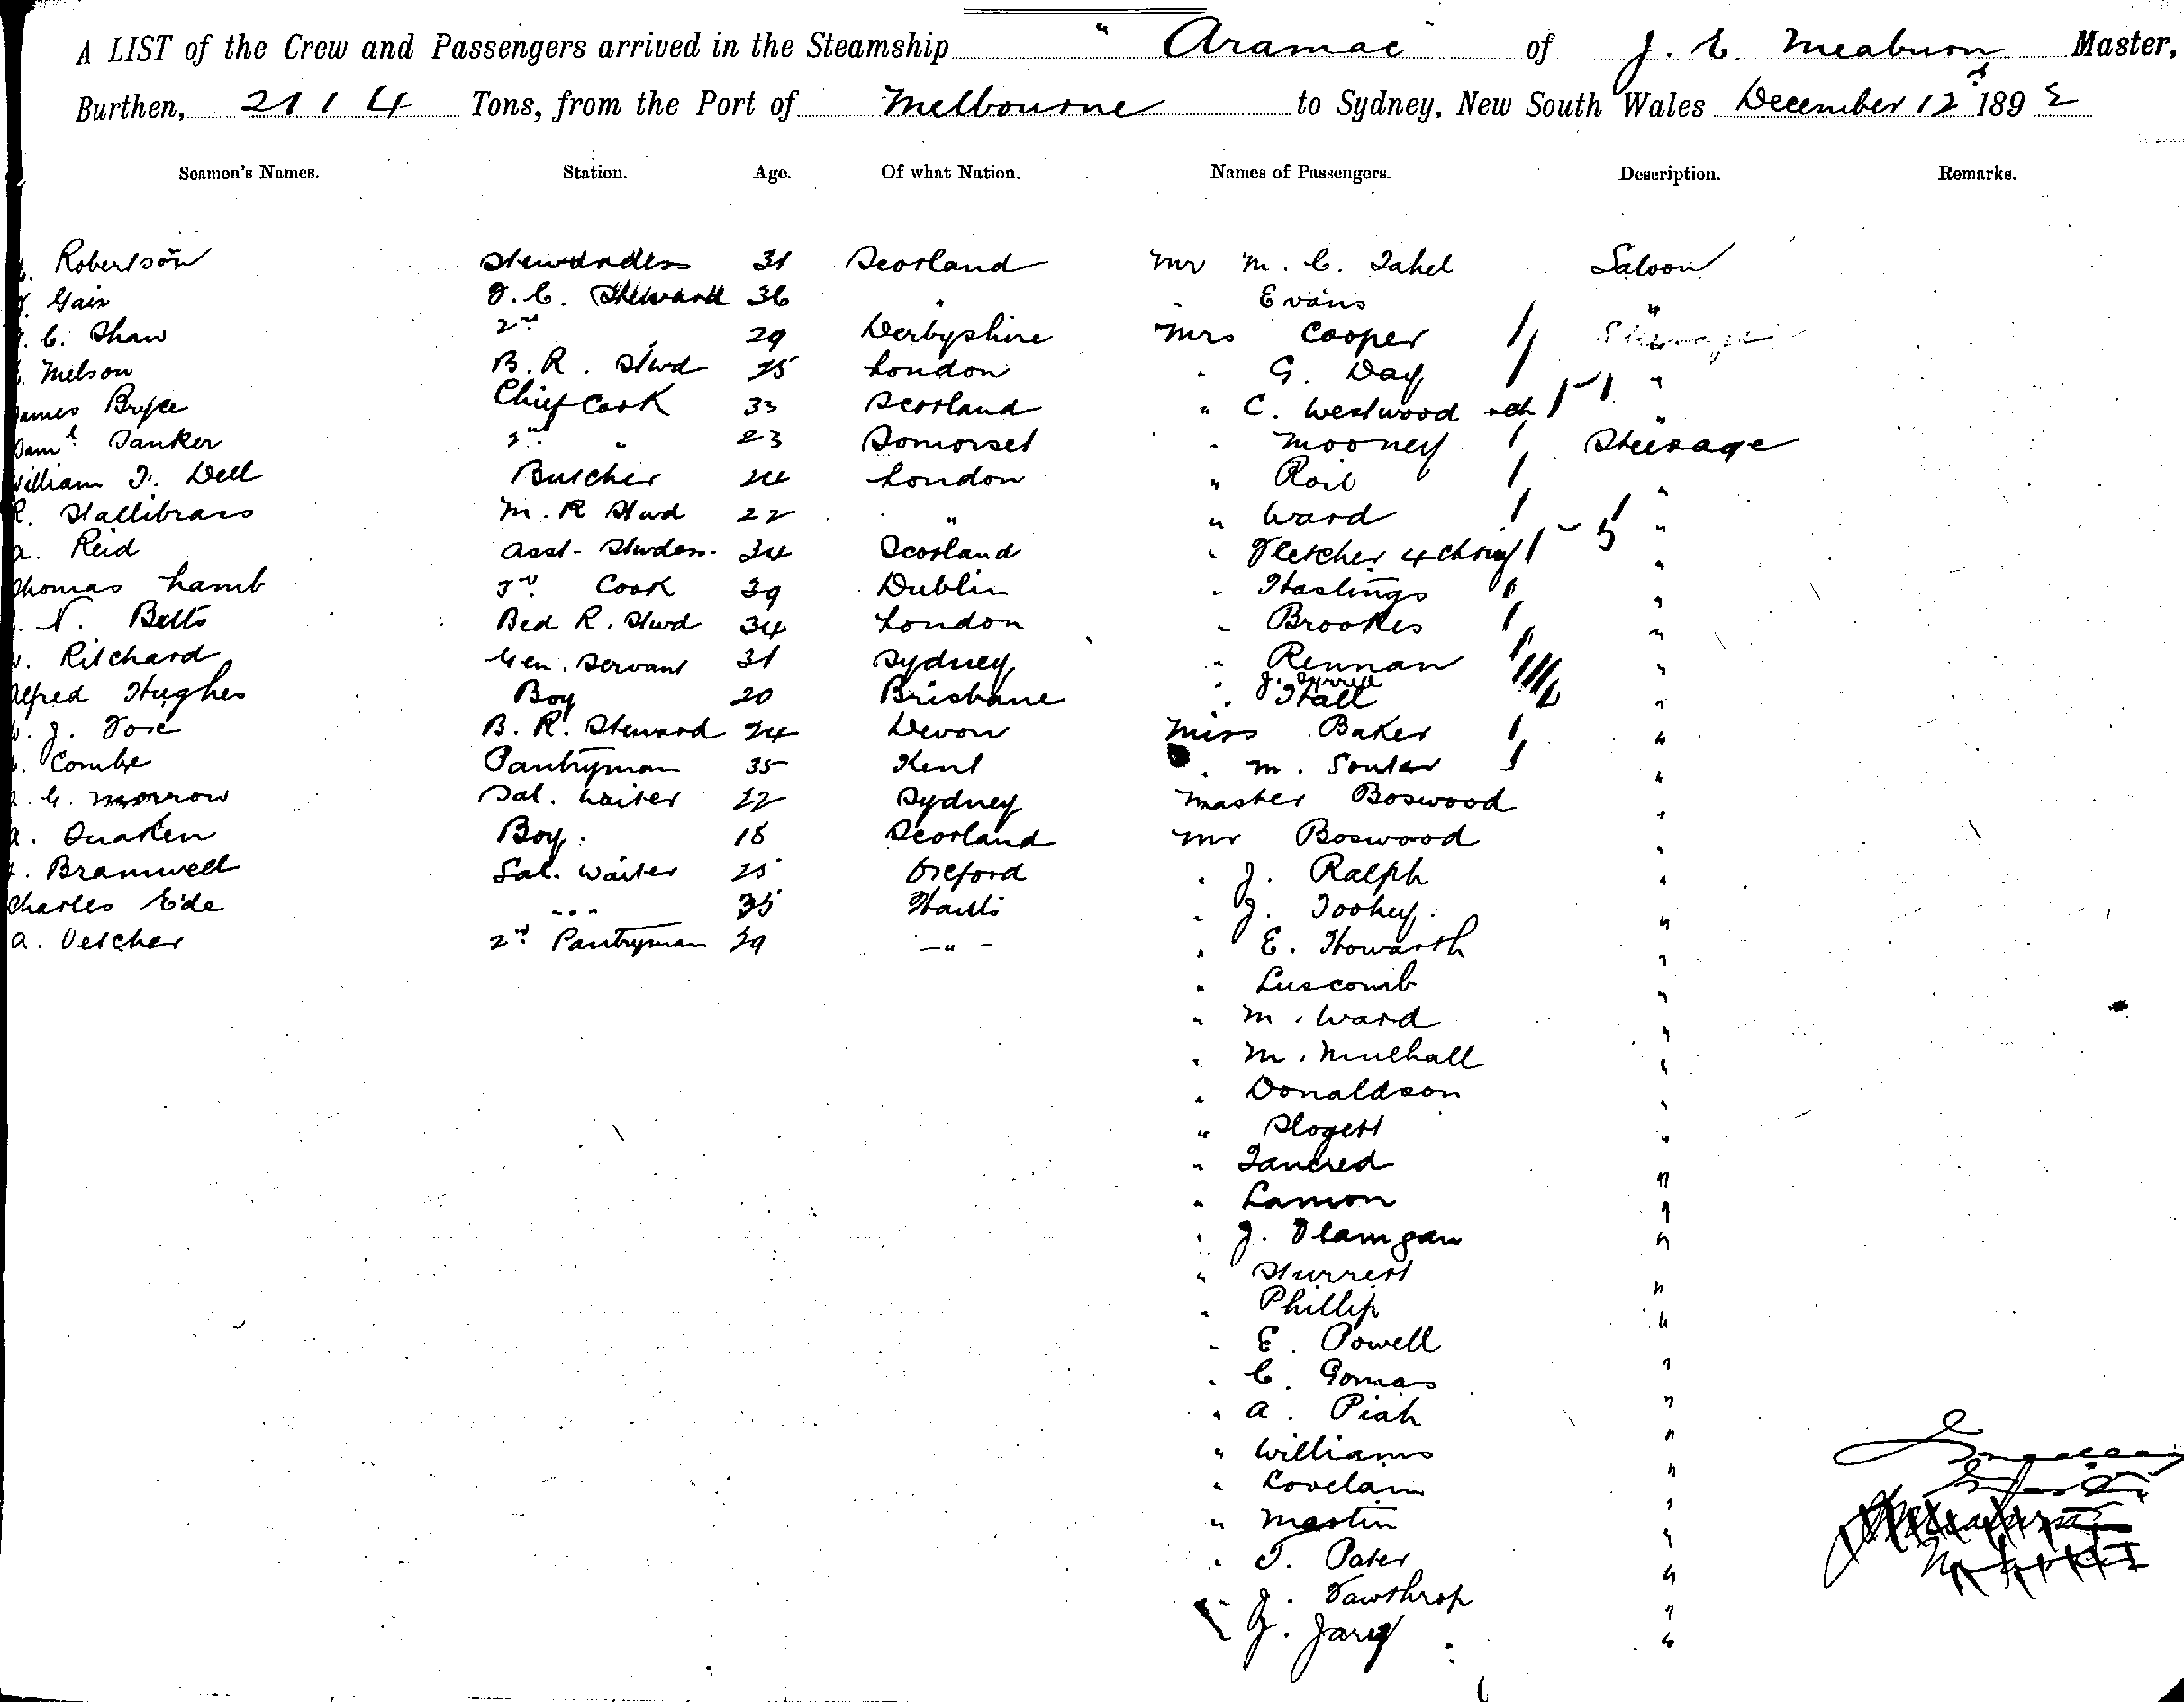 A LIST of the Crew and Passengers arrived in the Steamship "Aramac" of J. C. Meaburn Master,
Burthen, 2114 Tons, from the Port of Melbourne to Sydney, New South Wales December 12th 1892
Seamen's Names. Station. Age. Of what Nation. Names of Passengers. Description. Remarks.
Robertson Stewardess 31 Scotland Mr M. C. Zahel Saloon
Gair F. C. Steward 36 " " Evans "
C. Shaw 2nd 29 Derbyshire Mrs Cooper
Melson B. R. Stwd 25 London " G. Day "
James Bryce Chief Cook 33 Scotland " C. Westwood & ch 1 - 1 "
Saml Tanker 2nd " 23 Somerset " Mooney Steerage
William F. Dell Butcher 24 London " Rail "
R. Stallibrass M. R Stwd 22 " " Ward "
A. Reid Asst. Stwdess. 34 Scotland " Fletcher 4 chn 1 - 5 "
Thomas Lamb 3rd Cook 39 Dublin " Hastings "
N. Betts Bed R. Stwd 34 London " Brookes "
Ritchard Gen. Servant 31 Sydney " Rennan "
Alfred Hughes Boy 20 Brisbane " Hall "
J. Tose B. R. Steward 24 Devon Miss Baker "
Combe Pantryman 35 Kent " M. Souter "
G. Morrow Sal. Waiter 22 Sydney Master Boswood "
A. Quaken Boy. 18 Scotland Mr Boswood "
Bramwell Sal. Waiter 25 Oxford " J. Ralph "
Charles Ede " " " 35 Hants " J. Toohey "
A. Vetcher 2nd Pantryman 39 - " - " E. Howarth "
" Luscomb "
" M. Ward "
" M. Mulhall "
" Donaldson "
" Slogett "
" Tancred "
" Lamon "
" J. Flanigan "
" Sturrett "
" Phillip "
" E. Powell "
" C. Gomas "
" A. Piah "
" Williams "
" Lovelain "
" Martin "
" T. Pater "
" J. Fawthrop "
" J. Jary "